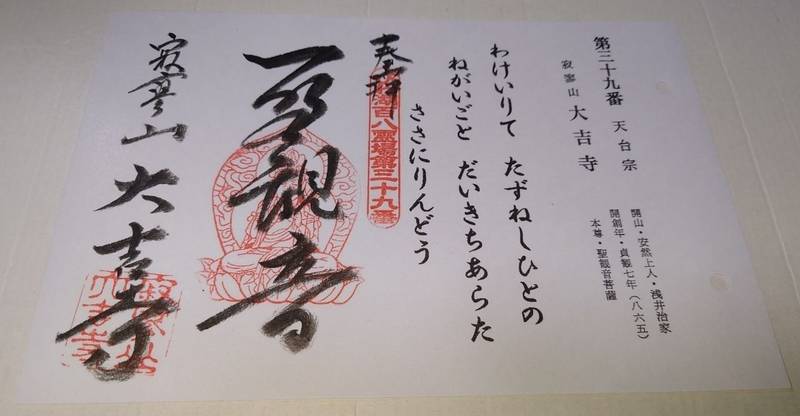 第三十九番 天台宗
寂寥山 大吉寺
開山・安然上人・浅井治家
開創年・貞観七年(八六五)
本尊・聖観音菩薩
わけいりて たずねしひとの
ねがいごと だいきちあらた
ささにりんどう
奉拝
湖百八霊場第三十九番
聖観音
寂寥山 大吉寺